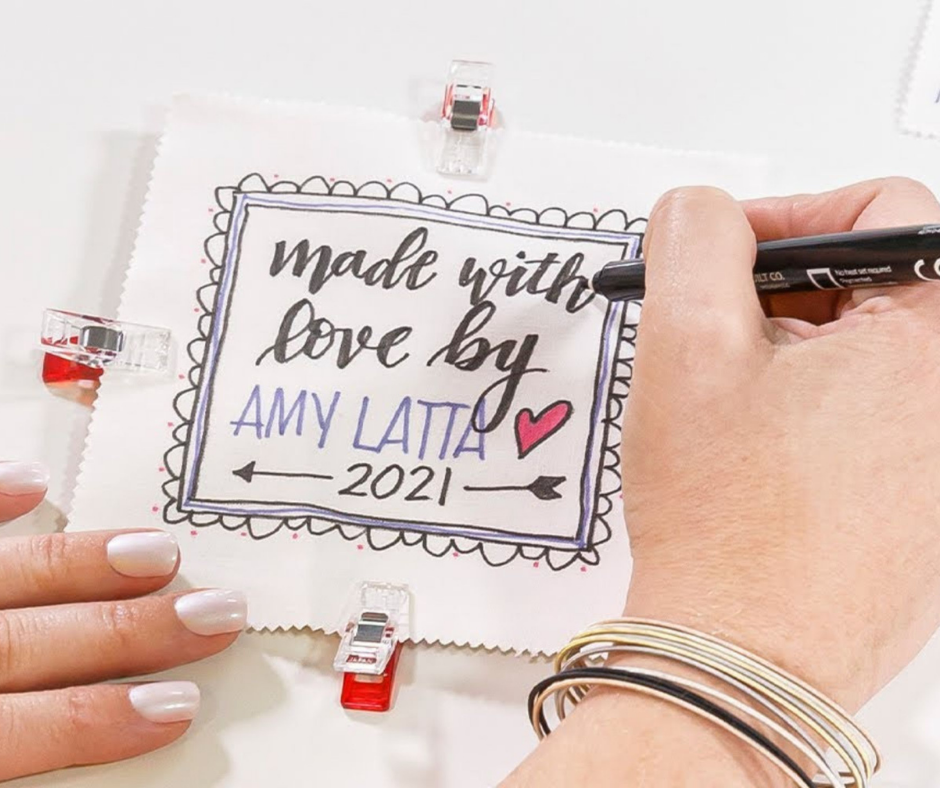 made with
love by
AMY LATTA
2021
ILT CO.
No heat set required
Pigmented
JAPAN